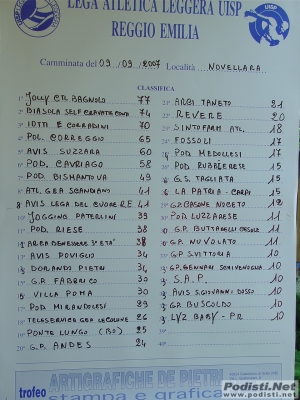 LEGA ATLETICA LEGGERA UISP
REGGIO EMILIA
Camminata del 09/09/2007 Località NOVELLARA
CLASSIFICA
1° JOLLY CTL BAGNOLO 77
2° BIASOLA SELF CRAVATE CONAD 74
3° IOTTI E CORRADINI 70
4° POL. CORREGGIO 65
5° AVIS SUZZARA 60
6° POD. CAVRIAGO 58
7° POD. BISMANTOVA 49
8° ATL. GEA SCANDIANO 41
8 AVIS LEGA DEL CUORE RE 41
10° JOGGING PATERLINI 39
11° POD. RIESE 38
12° AREA BENESSERE 3° ETA' 38
13° AVIS POVIGLIO 34
14° DORLANDO PIETRI 34
15° G.R. FABBRICO 30
16° VILLA POMA 30
17° POD. MIRANDOLESI 29
18° TELESERVICE GEA LE COLONNE 26
19° PONTE LUNGO (BO) 25
20° G.P. ANDES 24
21° ARCI TANETO 21
22° REVERE 20
23° SINTOFARM ATL. 18
24° FOSSOLI 17
25° POD. MEDOLLESI 17
26° POD. RUBBIERESE 15
27° G.S. TAGLIATA 15
28° LA PATRIA - CARPI 15
29° G.P. CASONE NOCETO 12
30° POD. LUZZARESE 11
31° G.P. BUTTARELLI CASOLE 11
32° G.P. NUVOLATO 11
33° G.P. S. VITTORIA 10
34° G.P. GENNARI SCHIVENOGLIA 10
35° S.A.P. 10
36° AVIS S. GIOVANNI DOSSO 10
37° G.P. BUSCOLDO 10
38° LUZ BABY - PR 10
39°
40°
trofeo ARTIGRAFICHE DE PIETRI
stampa e grafica
Podisti.Net
www.podisti.net